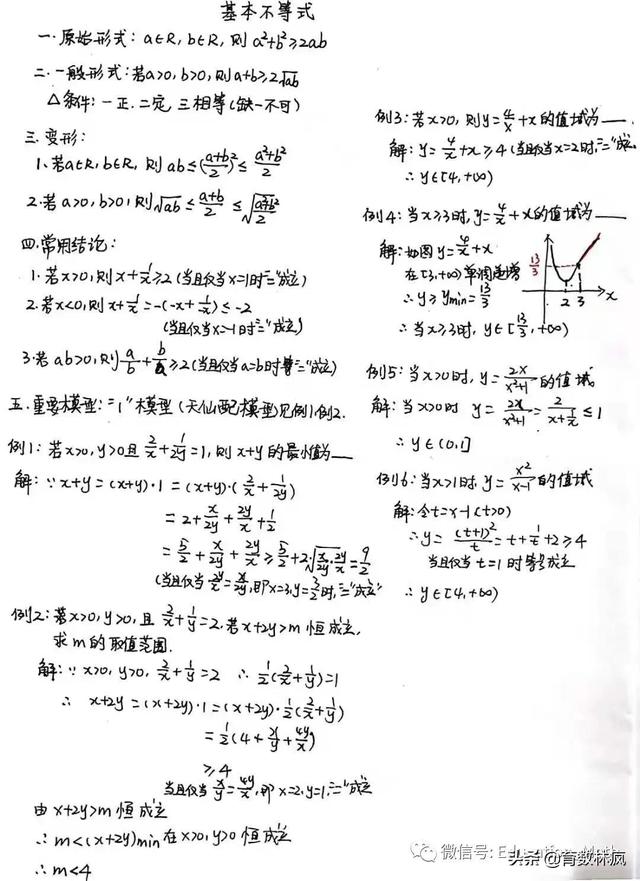 基本不等式
一.原始形式: a∈R, b∈R, 则 a²+b²≥2ab
二.一般形式:若a>0, b>0, 则a+b≥2√ab
△条件: 一正.二定.三相等(缺一不可)
三.变形:
1、若a∈R, b∈R, 则 ab≤(a+b/2)²≤(a²+b²)/2
2.若a>0, b>0, 则√ab≤(a+b)/2≤√((a²+b²)/2)
四.常用结论:
1.若x>0, 则x+1/x≥2(当且仅当x=1时"="成立)
2.若x<0, 则x+1/x=-(-x+1/x)≤-2
(当且仅当x=-1时"="成立)
3.若ab>0, 则a/b+b/a≥2(当且仅当a=b时"="成立)
五.重要模型:"1"模型(天仙配模型见例1例2.
例1:若x>0, y>0且2/x+1/2y=1, 则x+y的最小值为___
解:∵x+y=(x+y)·1=(x+y)·(2/x+1/2y)
=2+x/2y+2y/x+1/2
=5/2+x/2y+2y/x≥5/2+2·√(x/2y·2y/x)=9/2
(当且仅当2y/x=x/2y,即x=3,y=3/2时,"="成立)
例2:若x>0, y>0, 且2/x+1/y=2.若x+2y>m恒成立,
求m的取值范围.
解:∵x>0, y>0, 2/x+1/y=2 ∴1/2(2/x+1/y)=1
∴ x+2y=(x+2y)·1=(x+2y)·1/2(2/x+1/y)
=1/2(4+x/y+4y/x)
≥4
当且仅当x/y=4y/x,即x=2.y=1,"="成立
由x+2y>m恒成立
∴m<(x+2y)min在x>0,y>0恒成立
∴m<4
例3:若x>0, 则y=4/x+x的值域为___.
解: y=4/x+x≥4(当且仅当x=2时,"="成立
∴y∈[4,+∞)
例4:当x≥3时, y=4/x+x的值域为___
解:如图y=4/x+x
在[3,+∞)单调递增
∴y≥ymin=13/3
∴当x≥3时, y∈[13/3,+∞)
13/3
2 3
x
例5:当x>0时, y=2x/(x²+1)的值域
解:当x>0时 y=2x/(x²+1)=2/(x+1/x)≤1
∴y∈(0,1]
例6:当x>1时, y=x²/(x-1)的值域
解:令t=x-1(t>0)
∴y=(t+1)²/t=t+1/t+2≥4
当且仅当t=1时等号成立
∴y∈[4,+∞)
微信号: Education Math
头条 @育数林疯